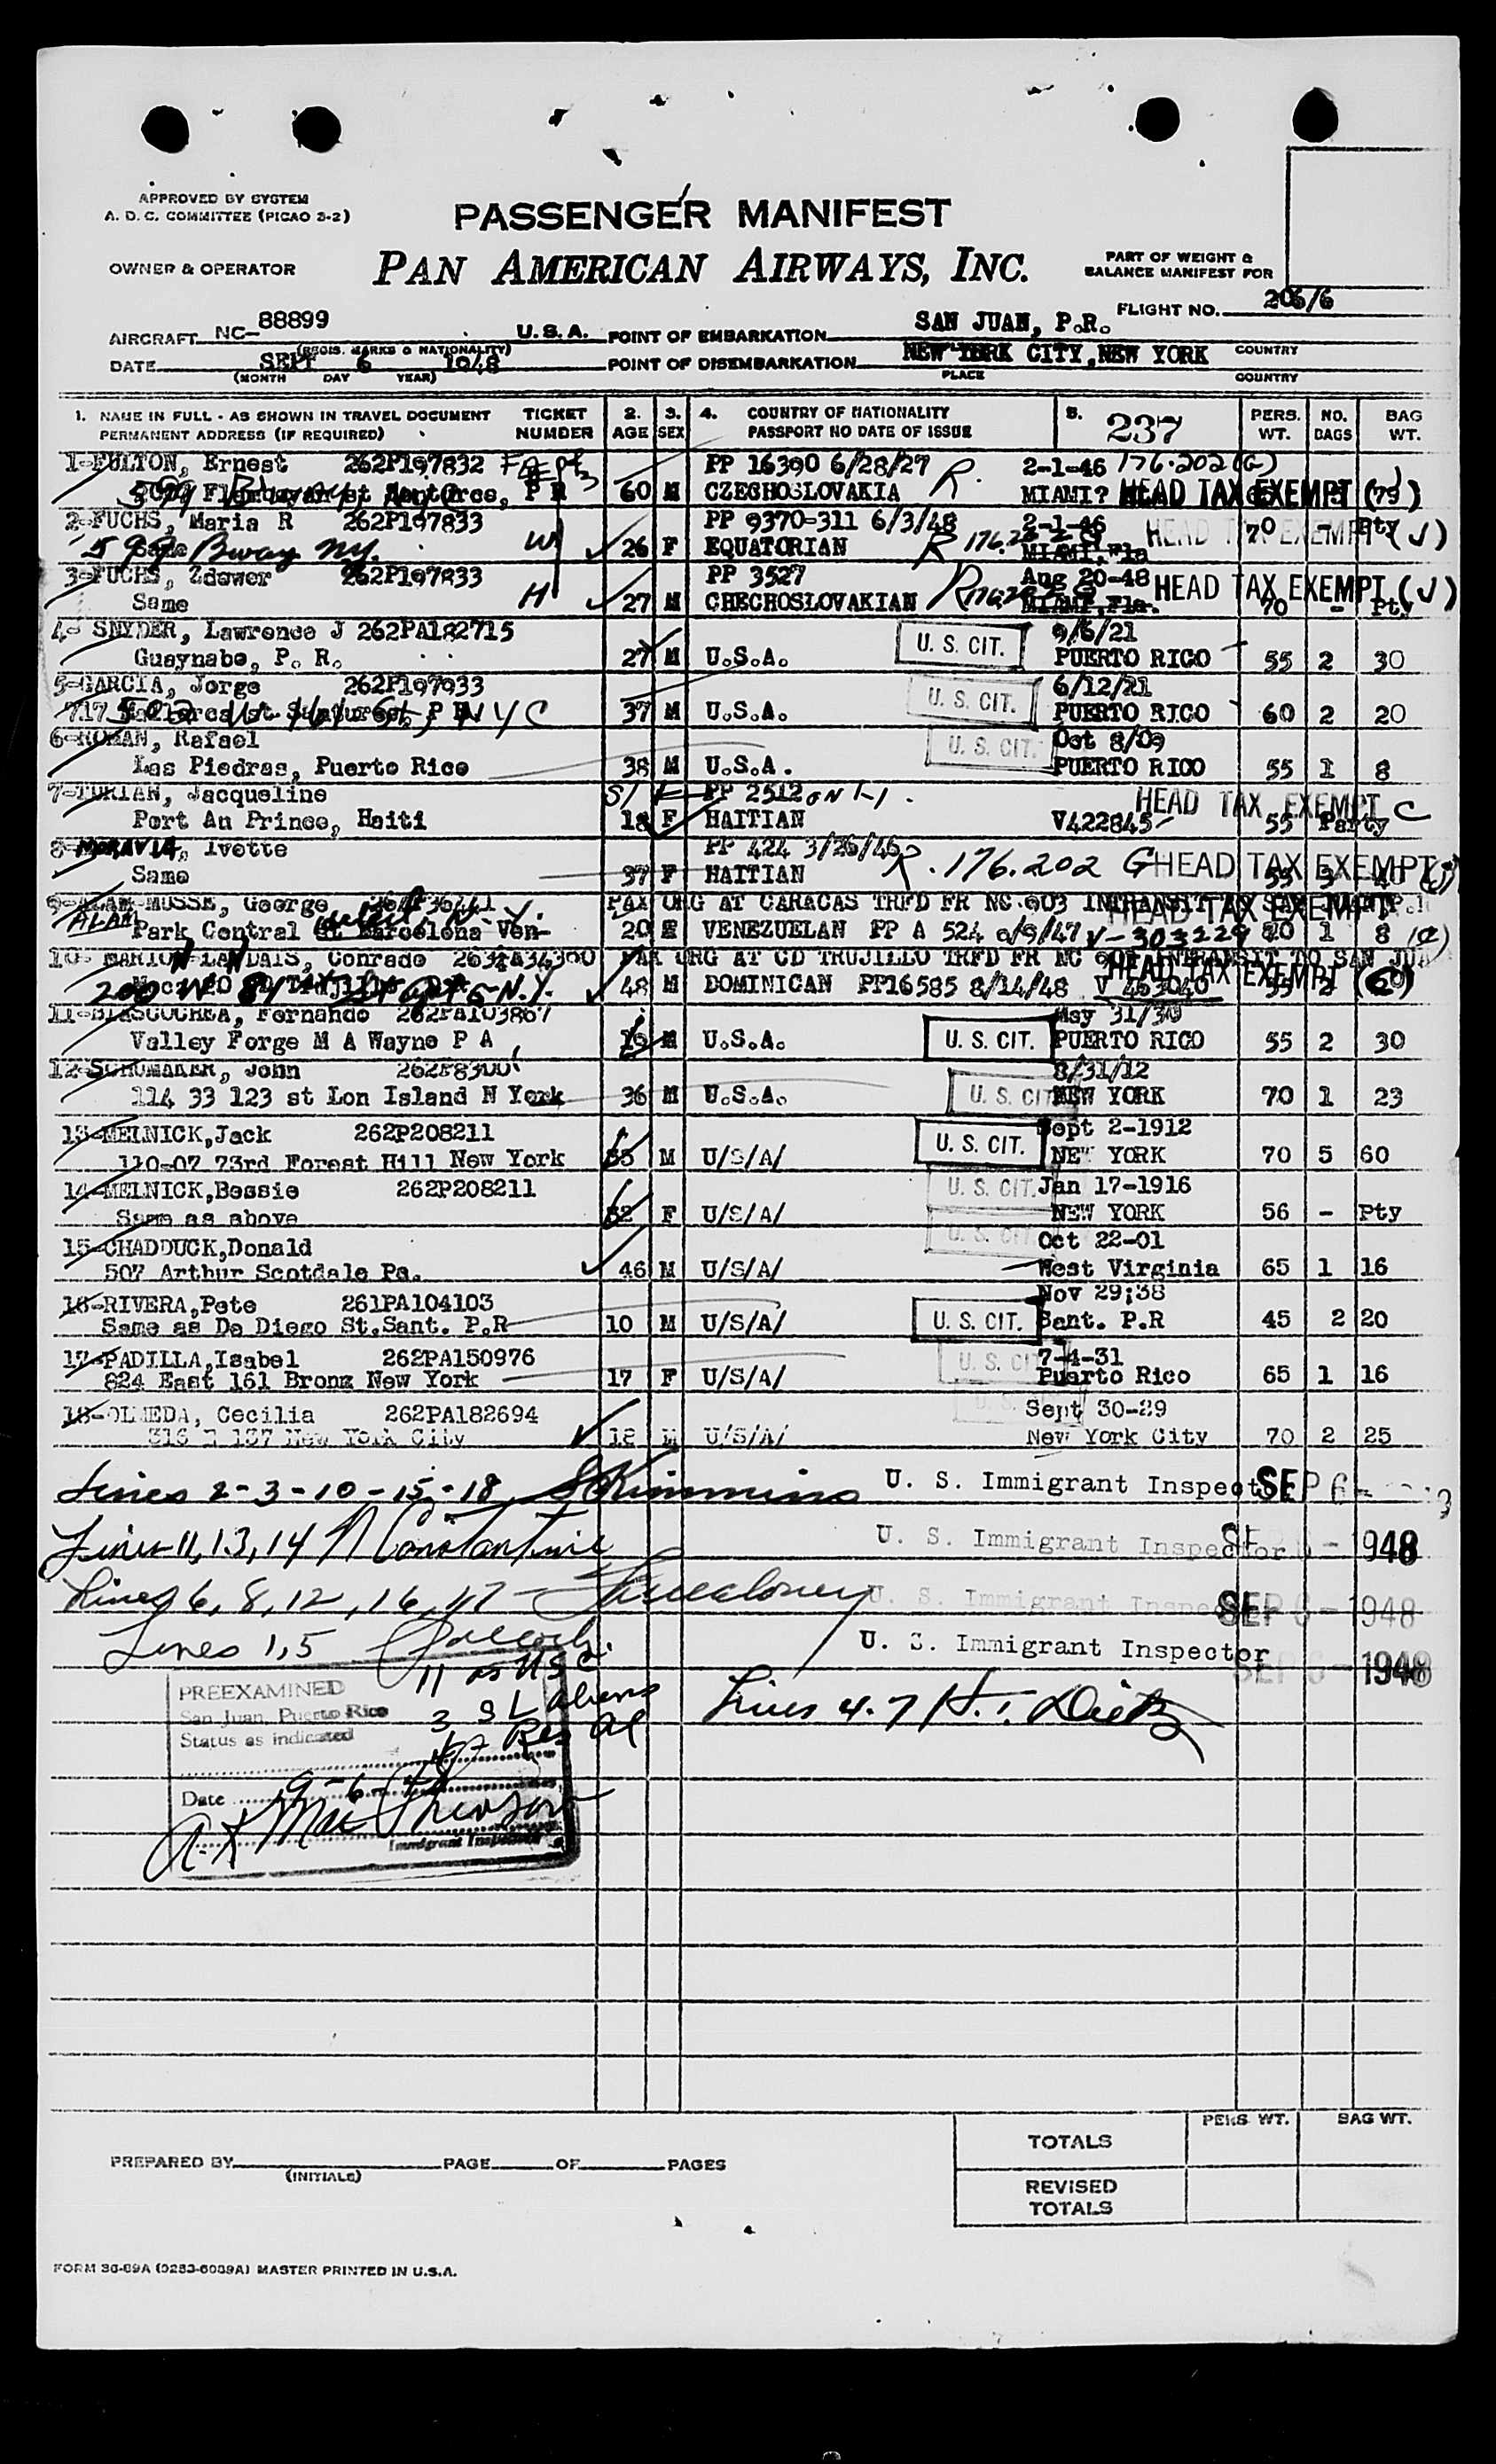 APPROVED BY SYSTEM
A. D. C. COMMITTEE (PICAO 3-2)
PASSENGER MANIFEST
OWNER & OPERATOR
PAN AMERICAN AIRWAYS, INC.
PART OF WEIGHT &
BALANCE MANIFEST FOR
FLIGHT NO. 206/6
AIRCRAFT NC-88899 U.S.A. POINT OF EMBARKATION SAN JUAN, P.R.
(REGIS. MARKS & NATIONALITY) COUNTRY
DATE SEPT 6 1948 POINT OF DISEMBARKATION NEW YORK CITY, NEW YORK
(MONTH DAY YEAR) PLACE COUNTRY
1. NAME IN FULL - AS SHOWN IN TRAVEL DOCUMENT TICKET 2. 3. 4. COUNTRY OF NATIONALITY 5. 237 PERS. NO. BAG
PERMANENT ADDRESS (IF REQUIRED) NUMBER AGE SEX PASSPORT NO DATE OF ISSUE WT. BAGS WT.
1-FULTON, Ernest 262P197832 PP 16390 6/28/27 R. 2-1-46 176.202(G)
60 M CZECHOSLOVAKIA MIAMI? HEAD TAX EXEMPT (J)
2-FUCHS, Maria R 262P197833 PP 9370-311 6/3/48 2-1-46 HEAD TAX EXEMPT (J) 70 - Pty
599 Bway NY. W 26 F EQUATORIAN R MIAMI, Fla
3-FUCHS, Zdower 262P197833 PP 3527 Aug 20-48 HEAD TAX EXEMPT (J)
Same H 27 M CHECHOSLOVAKIAN R MIAMI, Fla. 70 - Pty
4- SNYDER, Lawrence J 262PA182715 U. S. CIT. 9/6/21
Guaynabo, P. R. 27 M U.S.A. PUERTO RICO 55 2 30
5-GARCIA, Jorge 262P197933 U. S. CIT. 6/12/21
NYC 37 M U.S.A. PUERTO RICO 60 2 20
6-ROMAN, Rafael U. S. CIT. Oct 8/09
Las Piedras, Puerto Rico 38 M U.S.A. PUERTO RICO 55 1 8
7-TURIAN, Jacqueline PP 2512 HEAD TAX EXEMPT C
Port Au Prince, Haiti 18 F HAITIAN V422845 55 Party
8-MORAVIA, Ivette PP 424 3/26/46 R. 176.202 G HEAD TAX EXEMPT
Same 37 F HAITIAN 55 3
9-ALAM-MUSSE, George PAX ORG AT CARACAS TRFD FR NC 603 INTRANSIT TO SAN JUAN P.R
ALAM Park Central Barcelona Ven- 20 VENEZUELAN PP A 524 V-303229 HEAD TAX EXEMPT 1 8
10- MARION LANDAIS, Conrado PAX ORG AT CD TRUJILLO TRFD FR NC 601 INTRANSIT TO SAN JUA
48 M DOMINICAN PP16585 8/14/48 V 463040 HEAD TAX EXEMPT 55 2
11-BIASCOCHEA, Fernando 262PA103867 May 31/30
Valley Forge M A Wayne P A 19 M U.S.A. U. S. CIT. PUERTO RICO 55 2 30
12-SCHUMAKER, John 262P8300 8/31/12
114 33 123 st Lon Island N York 36 M U.S.A. U. S. CIT. NEW YORK 70 1 23
13-MELNICK,Jack 262P208211 U. S. CIT. Sept 2-1912
110-07 73rd Forest Hill New York 35 M U/S/A/ NEW YORK 70 5 60
14-MELNICK,Bessie 262P208211 U. S. CIT. Jan 17-1916
Same as above 32 F U/S/A/ NEW YORK 56 - Pty
15-CHADDUCK,Donald U. S. CIT. Oct 22-01
507 Arthur Scotdale Pa. 46 M U/S/A/ West Virginia 65 1 16
16-RIVERA,Pete 261PA104103 Nov 29;38
Same as De Diego St.Sant. P.R 10 M U/S/A/ U. S. CIT. Sant. P.R 45 2 20
17-PADILLA,Isabel 262PA150976 U. S. CIT. 7-4-31
824 East 161 Bronx New York 17 F U/S/A/ Puerto Rico 65 1 16
18-OLMEDA, Cecilia 262PA182694 Sept 30-29
316 E 137 New York City 18 M U/S/A/ New York City 70 2 25
Lines 2-3-10-15-18 U. S. Immigrant Inspector SEP 6 -
Lines 11,13,14 N Constantine U. S. Immigrant Inspector SEP 6 - 1948
Lines 6, 8, 12, 16, 17 U. S. Immigrant Inspector SEP 6 - 1948
Lines 1,5 U. S. Immigrant Inspector SEP 6 - 1948
PREEXAMINED
San Juan, Puerto Rico
Status as indicated
11 as USC
Date 9-6-48
Immigrant Inspector
Lines 4.7 H. Dietz
PERS WT. BAG WT.
TOTALS
PREPARED BY PAGE OF PAGES
(INITIALS)
REVISED
TOTALS
FORM 36-89A (0283-6089A) MASTER PRINTED IN U.S.A.